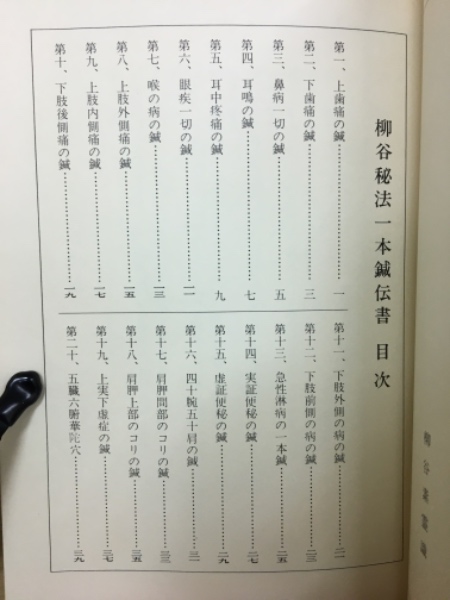 柳谷秘法一本鍼伝書 目次
第一、上歯痛の鍼………一
第二、下歯痛の鍼………三
第三、鼻病一切の鍼………五
第四、耳鳴の鍼………七
第五、耳中疼痛の鍼………九
第六、眼疾一切の鍼………一一
第七、喉の病の鍼………一三
第八、上肢外側痛の鍼………一五
第九、上肢内側痛の鍼………一七
第十、下肢後側痛の鍼………一九
第十一、下肢外側の病の鍼………二一
第十二、下肢前側の病の鍼………二三
第十三、急性淋病の一本鍼………二五
第十四、実証便秘の鍼………二七
第十五、虚証便秘の鍼………二九
第十六、四十腕五十肩の鍼………三一
第十七、肩胛間部のコリの鍼………三三
第十八、肩胛上部のコリの鍼………三五
第十九、上実下虚症の鍼………三七
第二十、五臓六腑華陀穴………三九